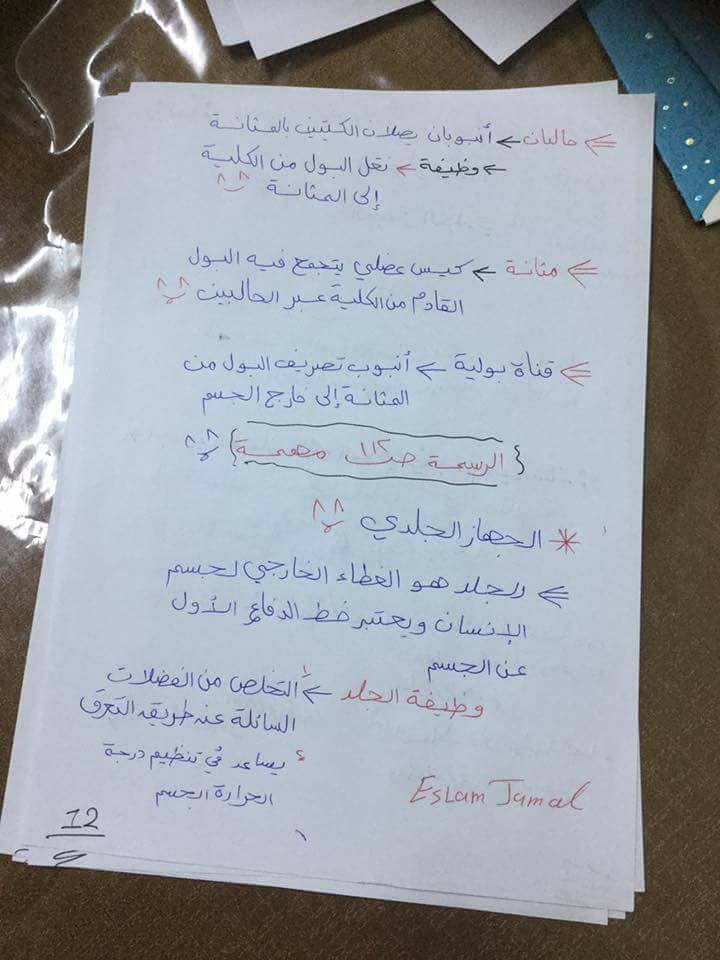 حالبان ← أنبوبان يصلان الكليتين بالمثانة
← وظيفة ← نقل البول من الكلية
إلى المثانة
مثانة ← كيس عضلي يتجمع فيه البول
القادم من الكلية عبر الحالبين
قناة بولية ← أنبوب تصريف البول من
المثانة إلى خارج الجسم
{الرسمة ص ١١٢ مهمة}
* الجهاز الجلدي
الجلد هو الغطاء الخارجي لجسم
الإنسان ويعتبر خط الدفاع الأول
عن الجسم
وظيفة الجلد ← ١ التخلص من الفضلات
السائلة عن طريق التعرق
٢ يساعد في تنظيم درجة
الحرارة الجسم
Eslam Jamal
12